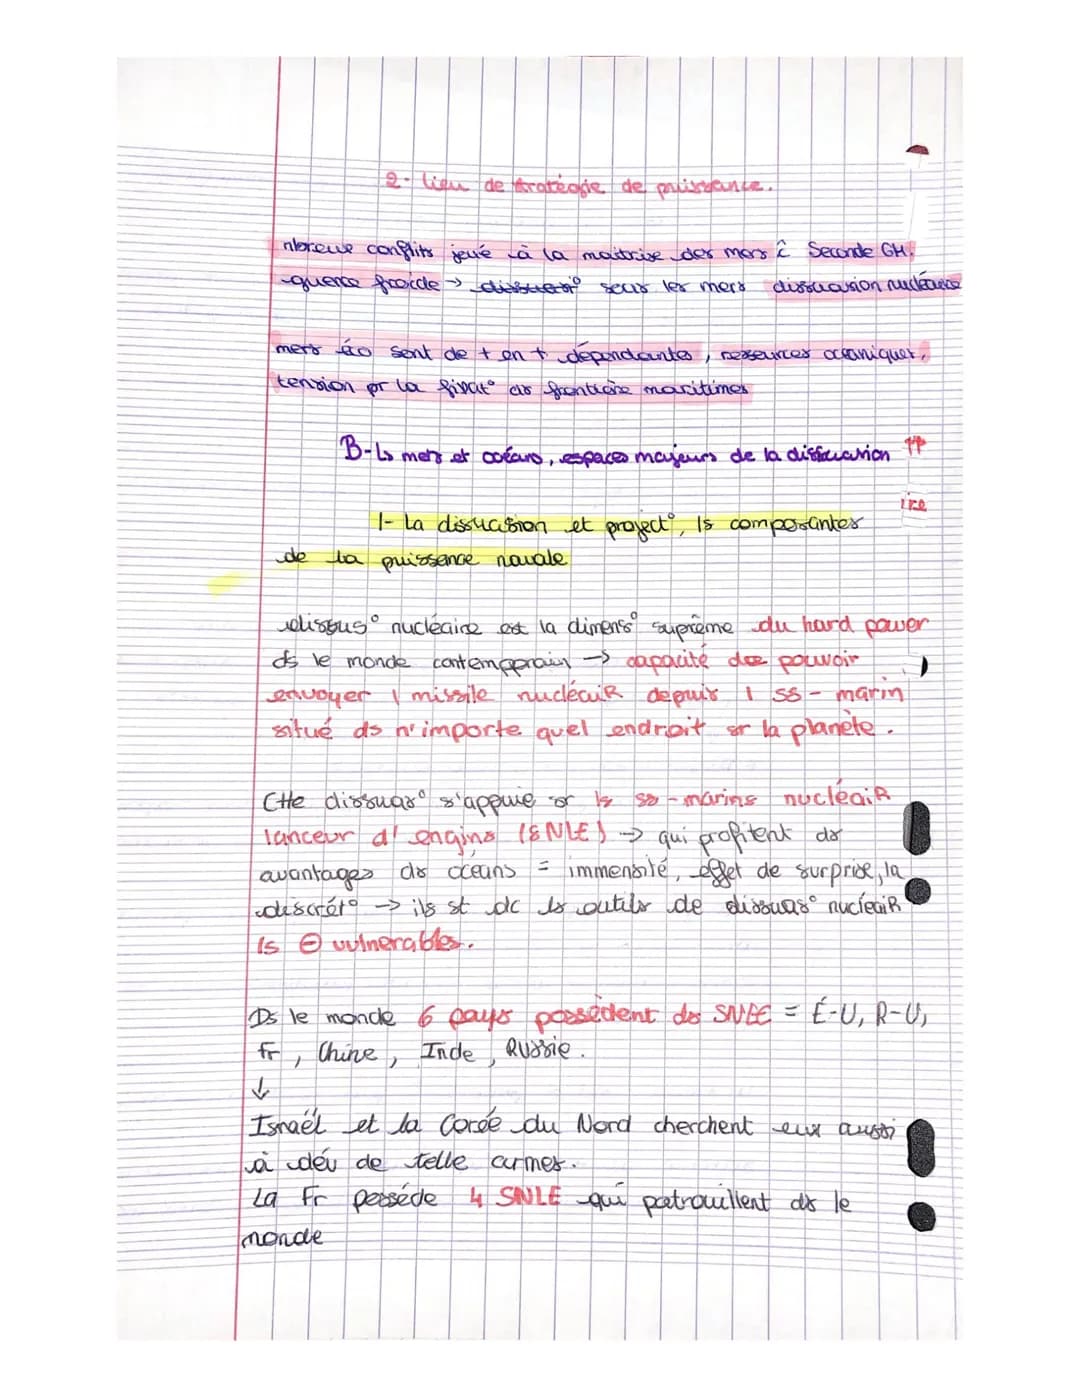 2- lieu de stratégie de puissance.
nbreuse conflits joué à la maitrise des mers c̑ Seconde GM.
guerre froide → sous les mers dissuasion nucléaire
mers éo sont de + en + dépendantes, ressources océaniques,
tension pr la fixat° ds frontière maritimes
B- Ls mers et océans, espaces majeurs de la dissuasion
ire
1- La dissuasion et project°, ls composantes
de la puissance navale
dissuas° nucléaire est la dimens° suprême du hard power
ds le monde contemporain → capacité de pouvoir
envoyer 1 missile nucléaiR depuis 1 ss-marin
situé ds n'importe quel endroit sr la planète.
Ctte dissuas° s'appuie sr ls ss-marins nucléaiR
lanceur d'engins (SNLE) → qui profitent ds
avantages ds océans = immensité, effet de surprise, la
discrét° → ils st dc ls outils de dissuas° nucléaiR
ls ⊖ vulnerables.
Ds le monde 6 pays possèdent ds SNLE = É-U, R-U,
Fr, Chine, Inde, Russie.
↓
Israël et la Corée du Nord cherchent eux aussi
à dév de telle armes.
La Fr possède 4 SNLE qui patrouillent ds le
monde